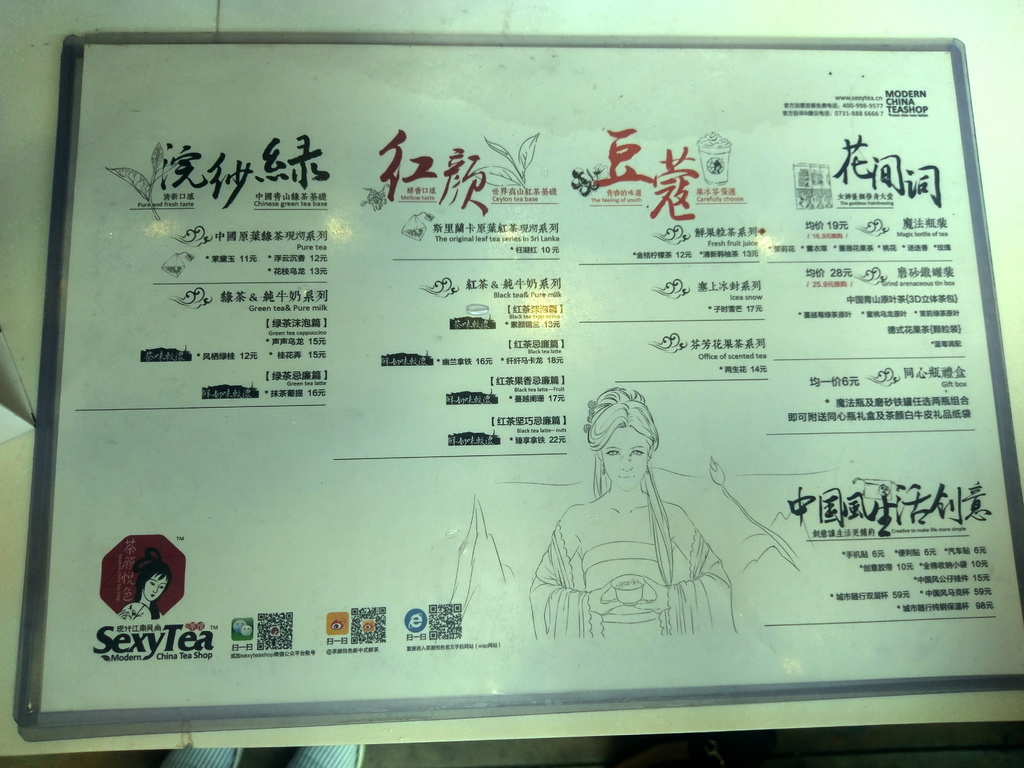 www.sexytea.cn
MODERN
CHINA
TEASHOP
官方加盟客服免费电话：400-998-9577
官方投诉&建议电话：0731-888 6666 7
浣纱綠
清新口感
Pure and fresh taste
中國青山綠茶基礎
Chinese green tea base
中國原葉綠茶现沏系列
Pure tea
*茉黛玉 11元 *浮云沉香 12元
*花枝乌龙 13元
綠茶 & 純牛奶系列
Green tea& Pure milk
【绿茶沫泡篇】
Green tea cappuccino
*声声乌龙 15元
*风栖绿桂 12元 *桂花弄 15元
【绿茶忌廉篇】
Green tea latte
*抹茶葡提 16元
红颜
醇香口感
Mellow taste
世界高山紅茶基礎
Ceylon tea base
斯里蘭卡原葉紅茶现沏系列
The original leaf tea series in Sri Lanka
*枉凝红 10元
紅茶 & 純牛奶系列
Black tea& Pure milk
【红茶沫泡篇】
*素颜锡兰 13元
【红茶忌廉篇】
Black tea latte
*幽兰拿铁 16元 *纤纤马卡龙 18元
【红茶果香忌廉篇】
Black tea latte—Fruit
*蔓越阑珊 17元
【红茶坚巧忌廉篇】
Black tea latte—nuts
*臻享拿铁 22元
豆蔻
青春的味道
The feeling of youth
果冰芬慢選
Carefully choose
鮮果粒茶系列
Fresh fruit juice
*金桔柠檬茶 12元 *清新韩柚茶 13元
塞上冰封系列
Icea snow
*子时雪芒 17元
芬芳花果茶系列
Office of scented tea
*两生花 14元
花间词
女神養顏修身大堂
均价 19元
魔法瓶装
/ 16.9元换购 /
Magic bottle of tea
*茉莉花 *薰衣草 *蔷薇花果茶 *桃花 *迷迭香 *玫瑰
均价 28元
磨砂鐵罐装
/ 25.9元换购 /
Grind arenaceous tin box
中国青山原叶茶{3D立体茶包}
*蔓越莓绿茶原叶 *蜜桃乌龙原叶 *茉莉绿茶原叶
德式花果茶{颗粒装}
*蓝莓调配
均一价6元
同心瓶禮盒
Gift box
* 魔法瓶及磨砂铁罐任选两瓶组合
即可附送同心瓶礼盒及茶颜白牛皮礼品纸袋
中国風生活创意
創意讓生活更簡約
Creative to make life more simple
*手机贴 6元 *便利贴 6元 *汽车贴 6元
*创意胶带 10元 *金棉收纳小袋 10元
*中国风公仔挂件 15元
*城市随行双层杯 59元 *中国风马克杯 59元
*城市随行纯钢保温杯 98元
茶颜悦色
TM
现代江南风尚
SexyTea
TM
Modern China Tea Shop
扫一扫
或加sexyteashop微信公众平台账号
扫一扫
@茶颜悦色新中式鲜茶
扫一扫
直接进入茶颜悦色官方手机网站（wap网站）